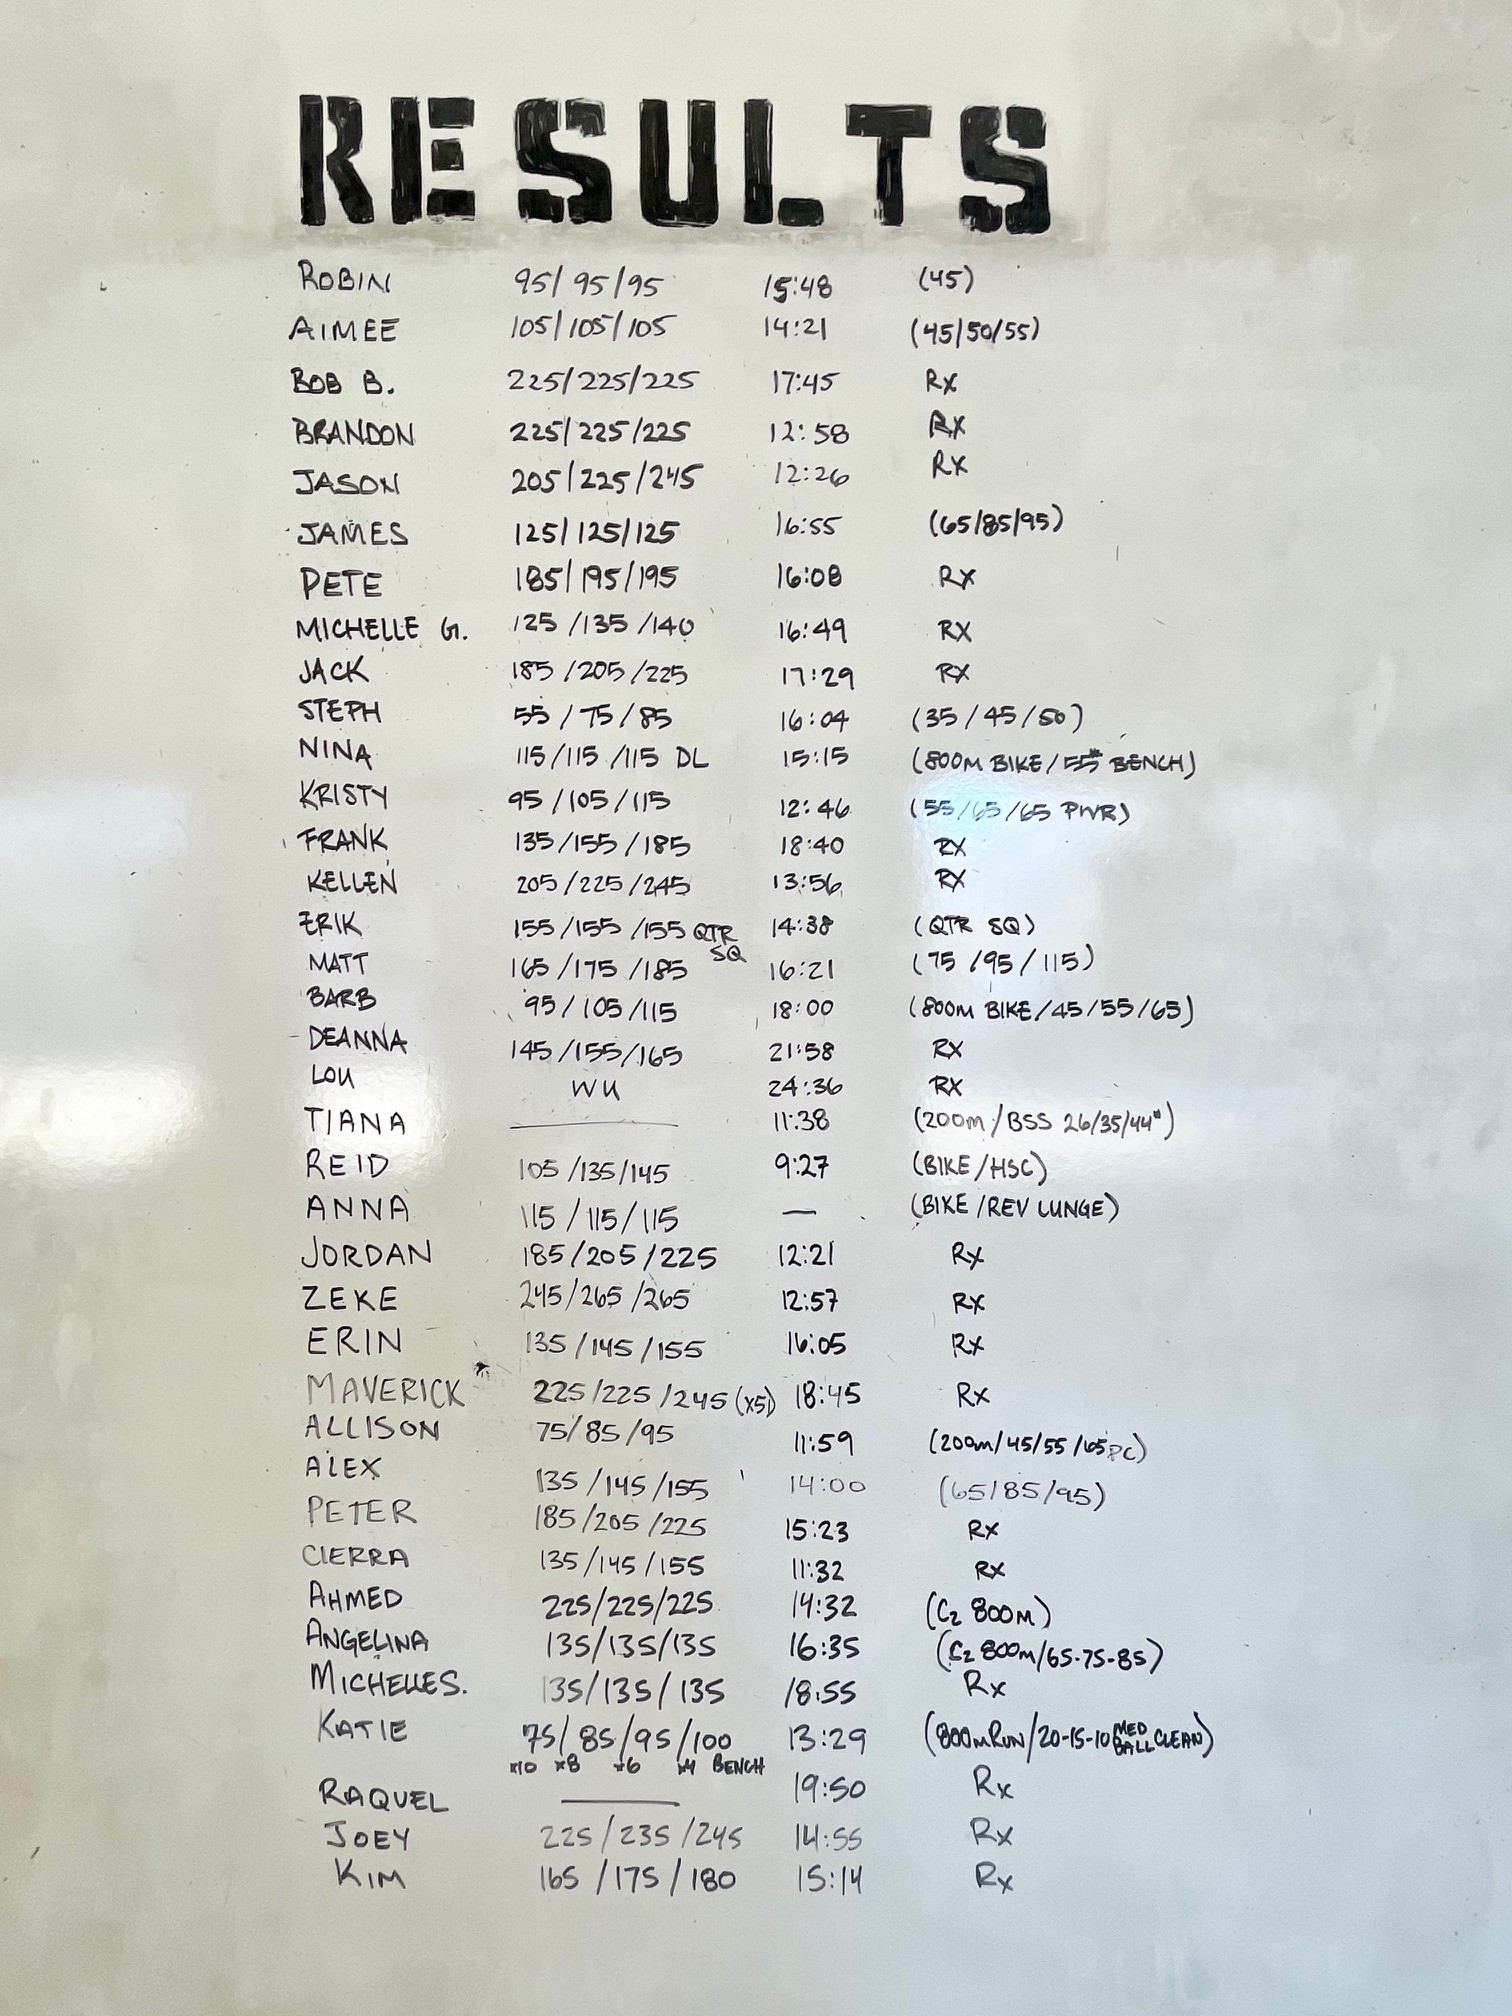 RESULTS
ROBIN 95/95/95 15:48 (45)
AIMEE 105/105/105 14:21 (45/50/55)
BOB B. 225/225/225 17:45 Rx
BRANDON 225/225/225 12:58 Rx
JASON 205/225/245 12:26 Rx
JAMES 125/125/125 16:55 (65/85/95)
PETE 185/195/195 16:08 Rx
MICHELLE G. 125/135/140 16:49 Rx
JACK 185/205/225 17:29 Rx
STEPH 55/75/85 16:04 (35/45/50)
NINA 115/115/115 DL 15:15 (800M BIKE/55# BENCH)
KRISTY 95/105/115 12:46 (55/65/65 PWR)
FRANK 135/155/185 18:40 RX
KELLEN 205/225/245 13:56 RX
ERIK 155/155/155 QTR SQ 14:38 (QTR SQ)
MATT 165/175/185 16:21 (75/95/115)
BARB 95/105/115 18:00 (800M BIKE/45/55/65)
DEANNA 145/155/165 21:58 RX
LOU WU 24:36 RX
TIANA — 11:38 (200m/BSS 26/35/44#)
REID 105/135/145 9:27 (BIKE/HSC)
ANNA 115/115/115 — (BIKE/REV LUNGE)
JORDAN 185/205/225 12:21 Rx
ZEKE 245/265/265 12:57 Rx
ERIN 135/145/155 16:05 Rx
MAVERICK 225/225/245 (x5) 18:45 Rx
ALLISON 75/85/95 11:59 (200m/45/55/65 PC)
ALEX 135/145/155 14:00 (65/85/95)
PETER 185/205/225 15:23 Rx
CIERRA 135/145/155 11:32 Rx
AHMED 225/225/225 14:32 (C2 800M)
ANGELINA 135/135/135 16:35 (C2 800m/65-75-85)
MICHELLE S. 135/135/135 18:55 Rx
KATIE 75/85/95/100 13:29 (800m RUN/20-15-10 MED BALL CLEAN)
x10 x8 x6 x4 BENCH
RAQUEL — 19:50 Rx
JOEY 225/235/245 14:55 Rx
KIM 165/175/180 15:14 Rx